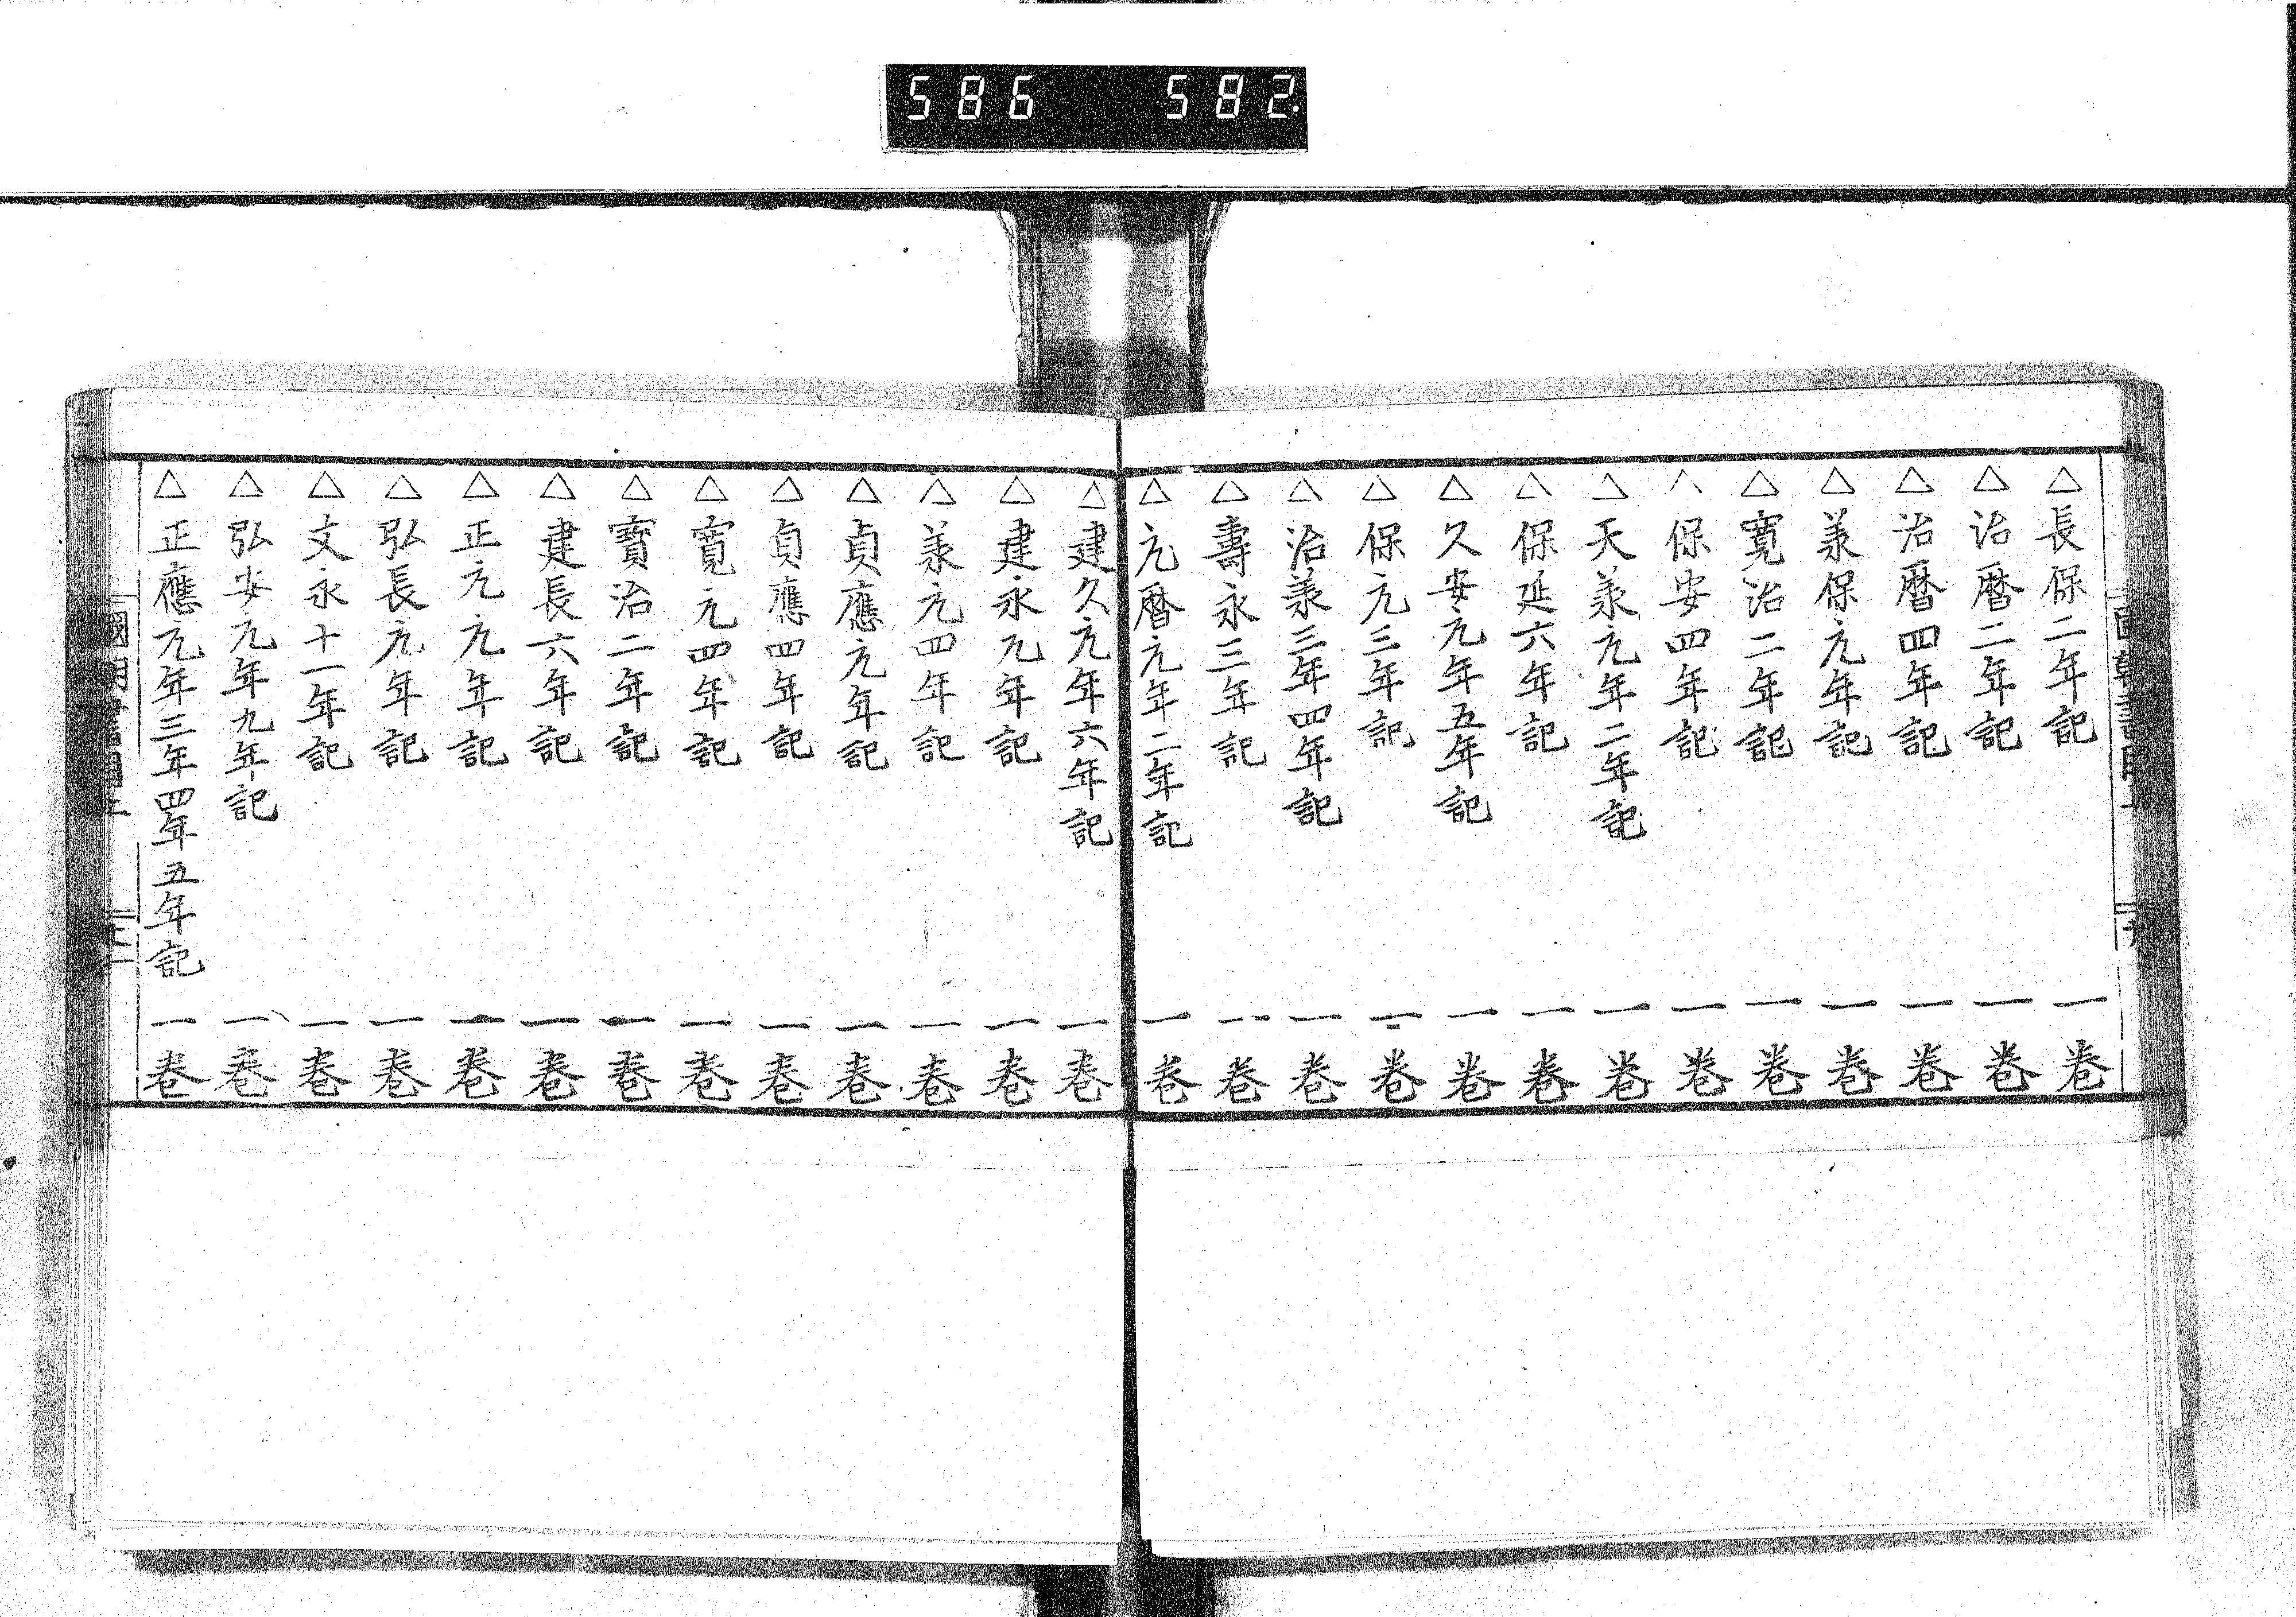 586 582.
△長保二年記 一卷
△治暦二年記 一卷
△治暦四年記 一卷
△羕保元年記 一卷
△寛治二年記 一卷
△保安四年記 一卷
△天羕元年二年記 一卷
△保延六年記 一卷
△久安元年五年記 一卷
△保元三年記 一卷
△治羕三年四年記 一卷
△壽永三年記 一卷
△元暦元年二年記 一卷
△建久元年六年記 一卷
△建永元年記 一卷
△羕元四年記 一卷
△貞應元年記 一卷
△貞應四年記 一卷
△寛元四年記 一卷
△寶治二年記 一卷
△建長六年記 一卷
△正元元年記 一卷
△弘長元年記 一卷
△文永十一年記 一卷
△弘安元年九年記 一卷
△正應元年三年四年五年記 一卷